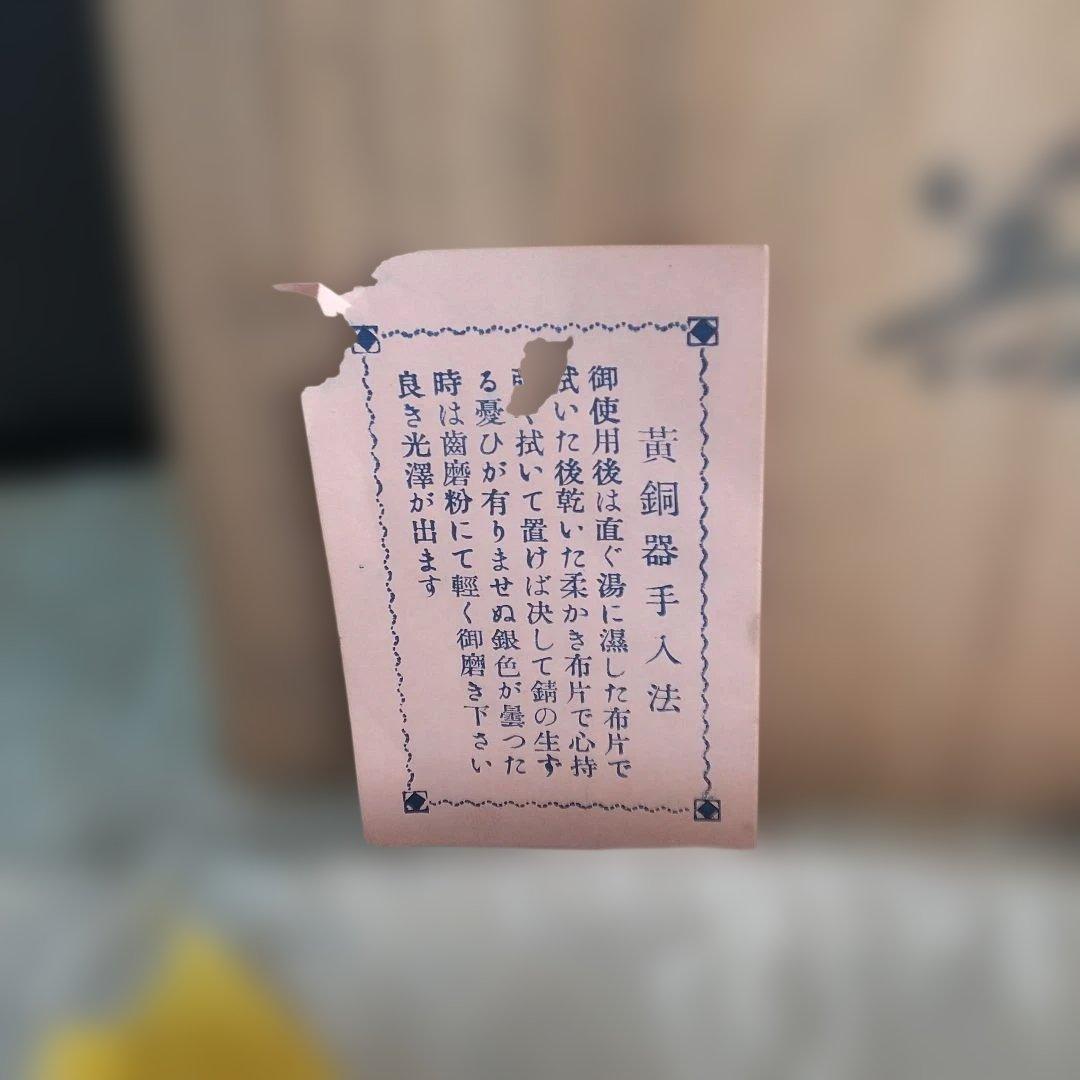 黃銅器手入法
御使用後は直ぐ湯に濕した布片で
拭いた後乾いた柔かき布片で心持
拭いて置けば决して錆の生ず
る憂ひが有りませぬ銀色が曇つた
時は齒磨粉にて輕く御磨き下さい
良き光澤が出ます